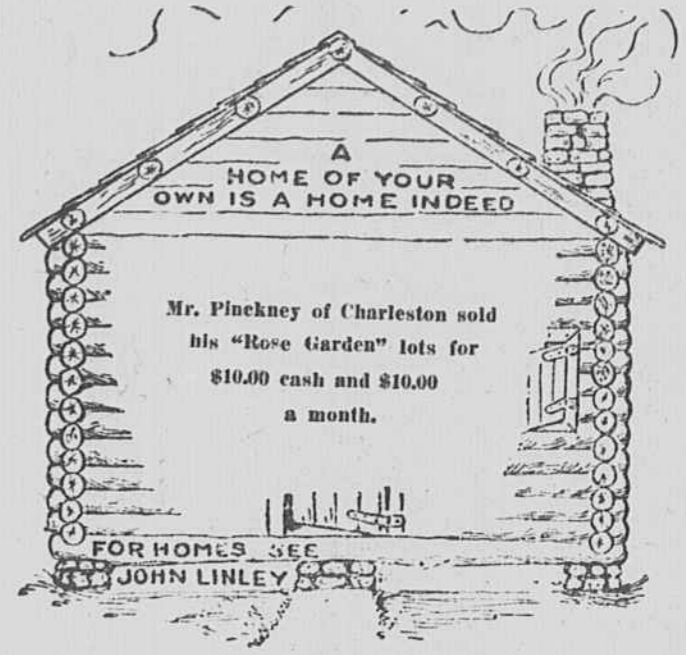 A
HOME OF YOUR
OWN IS A HOME INDEED
Mr. Pinckney of Charleston sold
his “Rose Garden” lots for
$10.00 cash and $10.00
a month.
FOR HOMES SEE
JOHN LINLEY